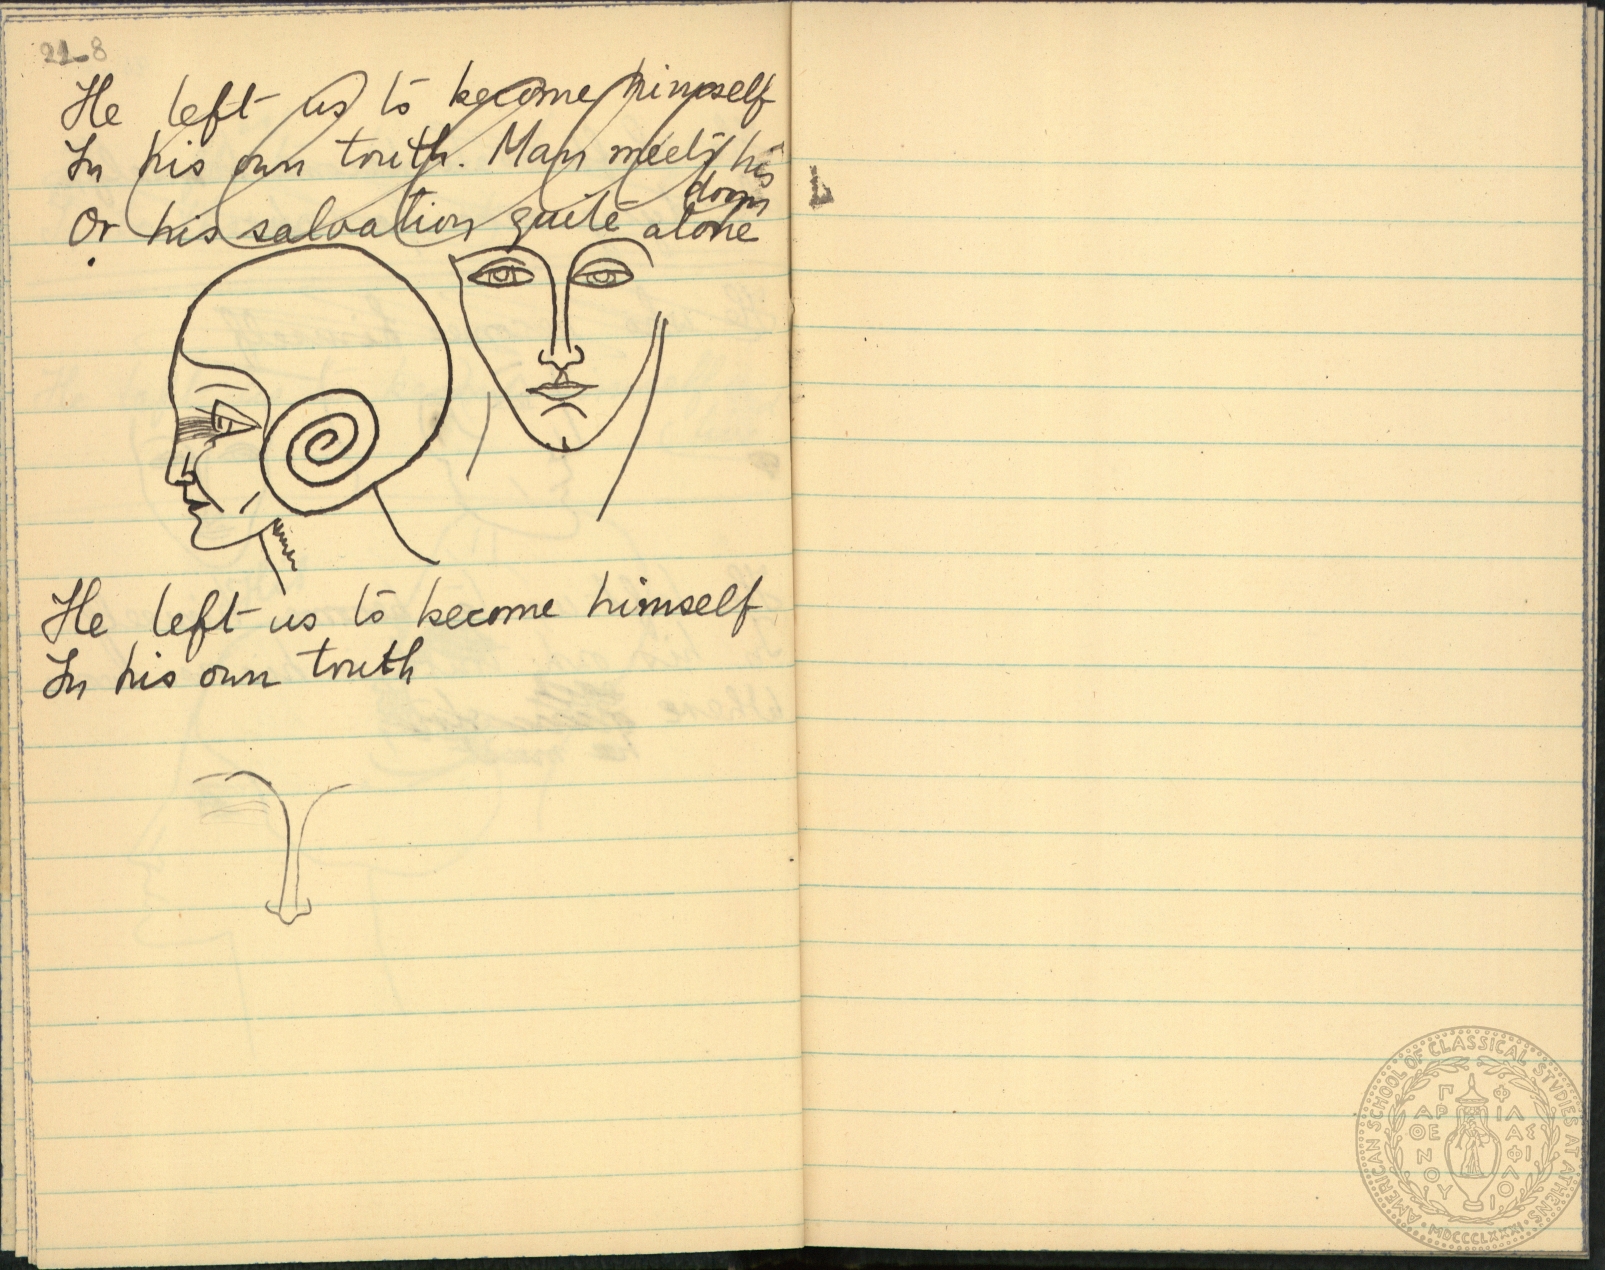 21-8
He left us to become himself
In his own truth. Man meets his
doom
Or his salvation quite alone
He left us to become himself
In his own truth
AMERICAN SCHOOL OF CLASSICAL STVDIES AT ATHENS
ΠΑΡΘΕΝΟΥ ΦΙΛΑΣ ΦΙΛΟΙ
MDCCCLXXXI